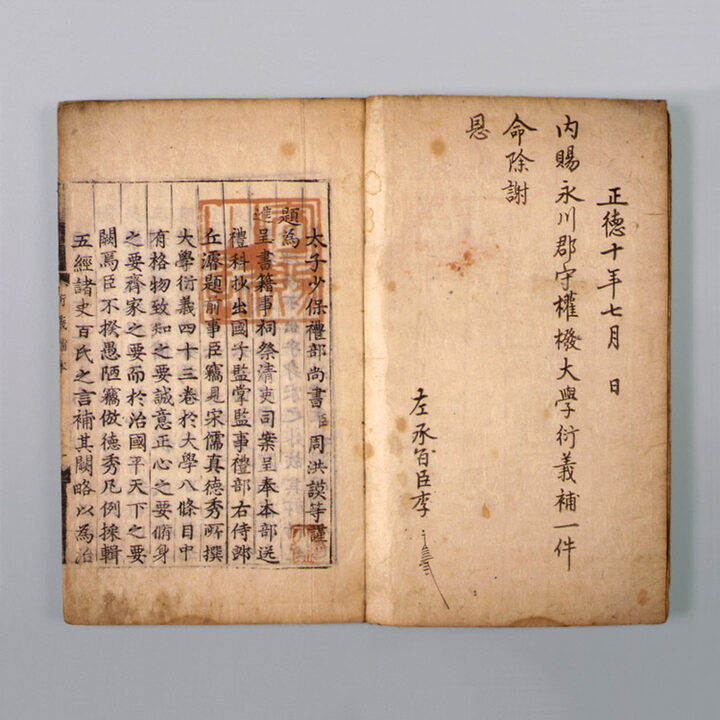 正德十年七月 日
內賜永川郡守權橃大學衍義補一件
命除謝
恩
左承旨臣李
太子少保禮部尚書臣周洪謨等謹
題為
進呈書籍事祠祭清吏司案呈奉本部送
禮科抄出國子監掌監事禮部右侍郎
丘濬題前事臣竊見宋儒真德秀所撰
大學衍義四十三卷於大學八條目中
有格物致知之要誠意正心之要脩身
之要齊家之要而於治國平天下之要
闕焉臣不揆愚陋竊倣德秀凡例採輯
五經諸史百氏之言補其闕略以為治